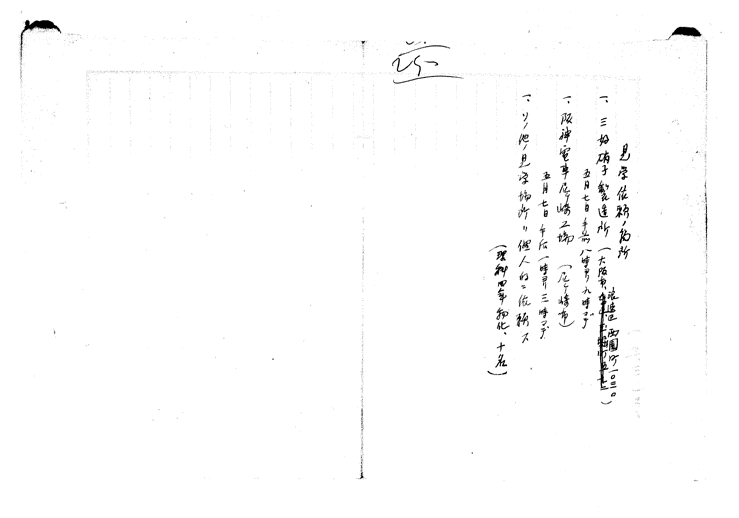 見学依頼ノ場所
一、三好硝子製造所（大阪市浪速区西園町一〇三〇）
五月七日午前八時ヨリ九時マデ
一、阪神電車尼ケ崎工場（尼ケ崎市）
五月七日午后一時ヨリ三時マデ
一、ソノ他ノ見学場所ハ個人的ニ依頼ス
（理科四年物化、十名）